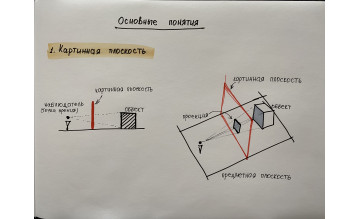 Основные понятия
1. Картинная плоскость
картинная плоскость
картинная плоскость
наблюдатель
(точка зрения)
объект
объект
проекция
предметная плоскость